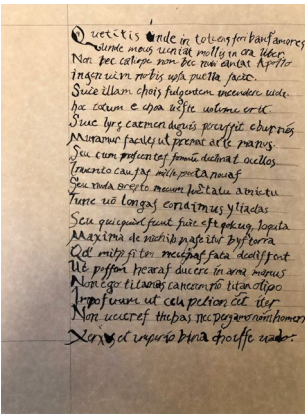 Quetitis unde in totiens scribant amores
unde meus veniat mollis in ora liber
Non hec caliope non hec mihi cantat Apollo
ingenium nobis ipsa puella facit
Sive illam chois fulgentem incendere vide
hoc totum e choa veste volume erit
Sive lyre carmen digitis percussit eburnis
Miramur faciles ut premat arte manus
Seu cum poscentes somnu declinat ocellos
Invenio causas mille poeta novas
Seu nuda erepto mecum luctatur amictu
Tunc vo longas condimus yliadas
Seu quicquid fecit sive est quodcunq loquta
Maxima de nichilo nascitur hystorra
Qd mihi si tm mecenas fata dedissent
Ut possem heroas ducere in arma manus
Non ego titanas canerem no titan olipo
Impositum ut celi pelion eet iter
Non veteres thebas nec pergama nom homeri
Xerxis et imperio bina choisse vada